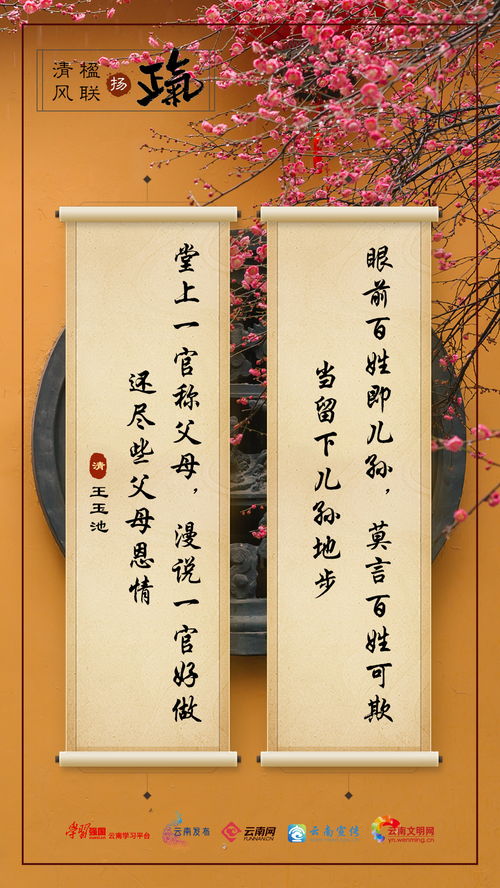 清风
楹联
扬
正氣
眼前百姓即儿孙，莫言百姓可欺
当留下儿孙地步
堂上一官称父母，漫说一官好做
还尽些父母恩情
清 王玉池
学习强国 云南学习平台
云南发布
云南网
YUNNAN.CN
云南宣传
云南文明网
yn.wenming.cn